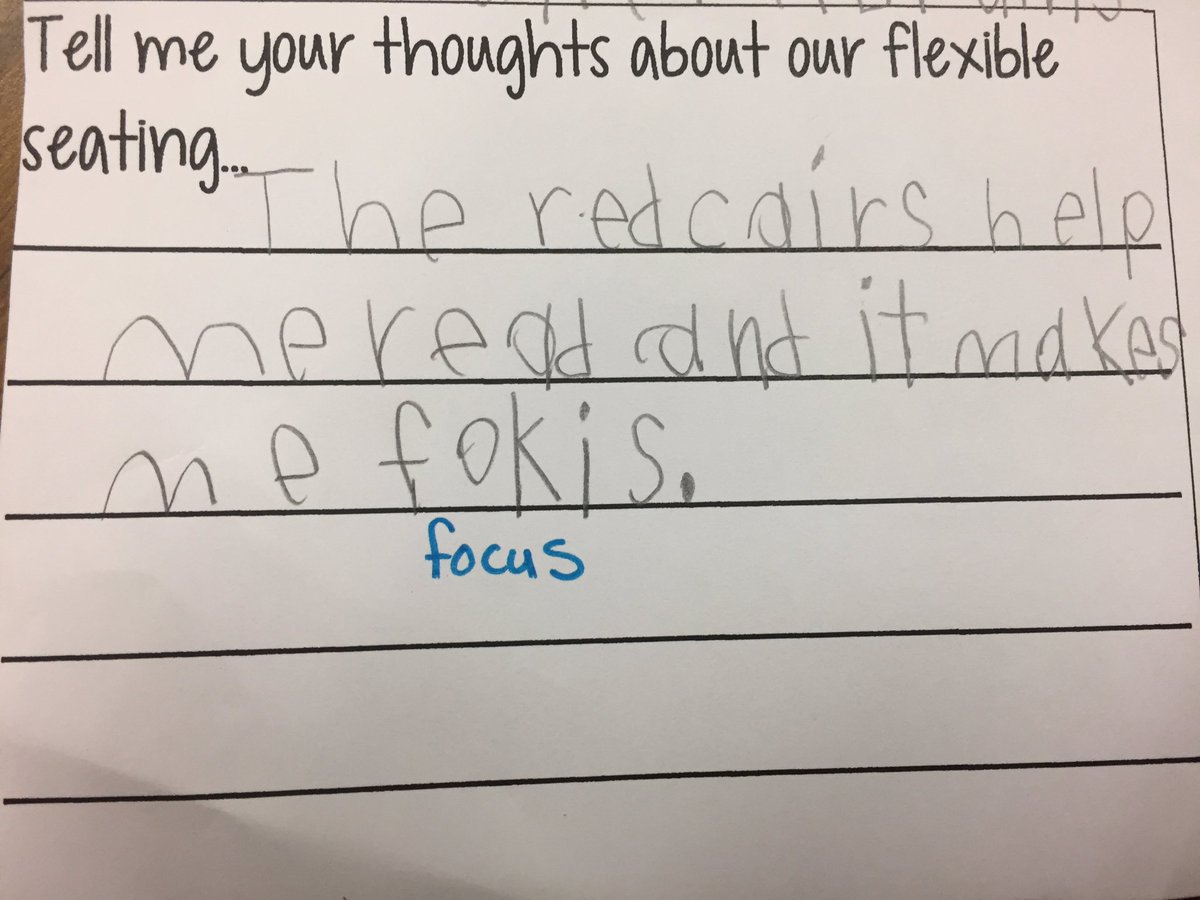 Tell me your thoughts about our flexible
seating...
The red cairs help
me read and it makes
me fokis.
focus